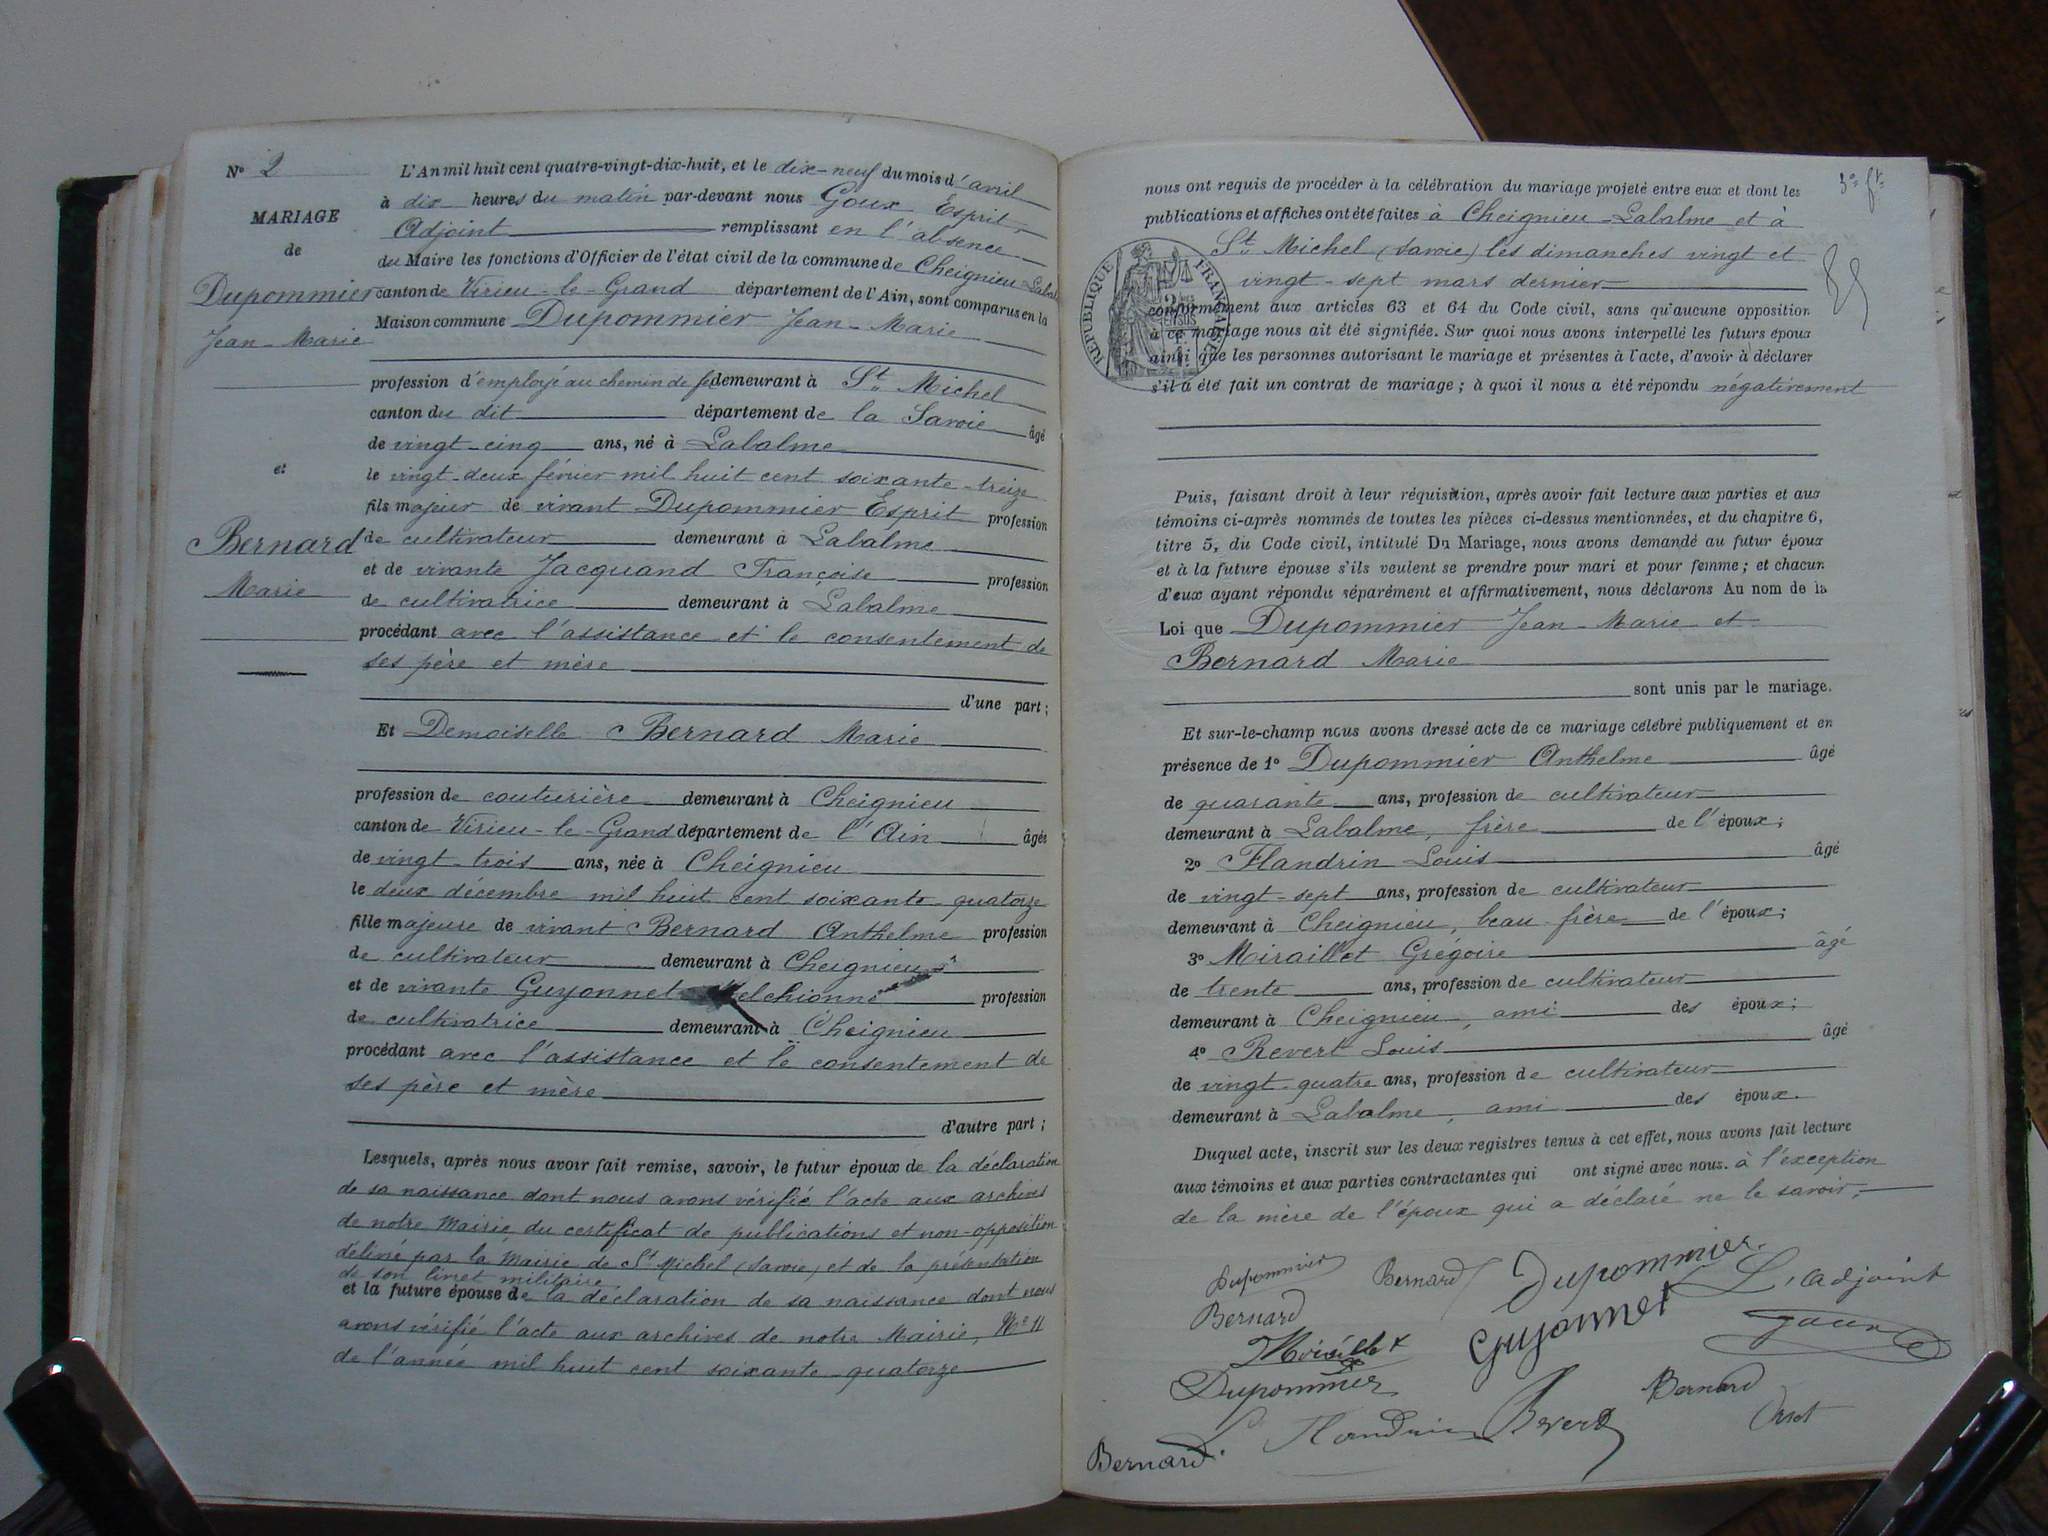 N° 2
MARIAGE
de
Dupommier
Jean-Marie
et
Bernard
Marie
L'An mil huit cent quatre-vingt-dix-huit, et le dix-neuf du mois d'avril
à dix heures du matin par-devant nous Goux Esprit,
Adjoint remplissant en l'absence
du Maire les fonctions d'Officier de l'état civil de la commune de Cheignieu-Labal
canton de Virieu-le-Grand département de l'Ain, sont comparus en la
Maison commune Dupommier Jean-Marie
profession d'employé au chemin de fer demeurant à St Michel
canton du dit département de la Savoie âgé
de vingt-cinq ans, né à Labalme
le vingt-deux février mil huit cent soixante-treize
fils majeur de vivant Dupommier Esprit profession
de cultivateur demeurant à Labalme
et de vivante Jacquand Françoise profession
de cultivatrice demeurant à Labalme
procédant avec l'assistance et le consentement de
ses père et mère
d'une part ;
Et Demoiselle Bernard Marie
profession de couturière demeurant à Cheignieu
canton de Virieu-le-Grand département de l'Ain âgée
de vingt-trois ans, née à Cheignieu
le deux décembre mil huit cent soixante-quatorze
fille majeure de vivant Bernard Anthelme profession
de cultivateur demeurant à Cheignieu
et de vivante Guyonnet Melchionne profession
de cultivatrice demeurant à Cheignieu
procédant avec l'assistance et le consentement de
ses père et mère
d'autre part ;
Lesquels, après nous avoir fait remise, savoir, le futur époux de la déclaration
de sa naissance dont nous avons vérifié l'acte aux archives
de notre Mairie, du certificat de publications et non-opposition
délivré par la Mairie de St Michel (Savoie) et de la présentation
de son livret militaire
et la future épouse de la déclaration de sa naissance dont nous
avons vérifié l'acte aux archives de notre Mairie, N° 11
de l'année mil huit cent soixante-quatorze
nous ont requis de procéder à la célébration du mariage projeté entre eux et dont les
publications et affiches ont été faites à Cheignieu-Labalme et à
St Michel (Savoie) les dimanches vingt et
vingt-sept mars dernier
conformément aux articles 63 et 64 du Code civil, sans qu'aucune opposition
à ce mariage nous ait été signifiée. Sur quoi nous avons interpellé les futurs époux
ainsi que les personnes autorisant le mariage et présentes à l'acte, d'avoir à déclarer
s'il a été fait un contrat de mariage ; à quoi il nous a été répondu négativement
RÉPUBLIQUE FRANÇAISE
Puis, faisant droit à leur réquisition, après avoir fait lecture aux parties et aux
témoins ci-après nommés de toutes les pièces ci-dessus mentionnées, et du chapitre 6,
titre 5, du Code civil, intitulé Du Mariage, nous avons demandé au futur époux
et à la future épouse s'ils veulent se prendre pour mari et pour femme ; et chacun
d'eux ayant répondu séparément et affirmativement, nous déclarons Au nom de la
Loi que Dupommier Jean-Marie et
Bernard Marie
sont unis par le mariage.
Et sur-le-champ nous avons dressé acte de ce mariage célébré publiquement et en
présence de 1° Dupommier Anthelme âgé
de quarante ans, profession de cultivateur
demeurant à Labalme, frère de l'époux ;
2° Flandrin Louis âgé
de vingt-sept ans, profession de cultivateur
demeurant à Cheignieu, beau-frère de l'époux ;
3° Miraillet Grégoire âgé
de trente ans, profession de cultivateur
demeurant à Cheignieu, ami des époux ;
4° Revert Louis âgé
de vingt-quatre ans, profession de cultivateur
demeurant à Labalme, ami des époux.
Duquel acte, inscrit sur les deux registres tenus à cet effet, nous avons fait lecture
aux témoins et aux parties contractantes qui ont signé avec nous. à l'exception
de la mère de l'époux qui a déclaré ne le savoir,
Dupommier Bernard Dupommier L'Adjoint
Bernard Guyonnet Goux
Miraillet
Dupommier Bernard
Flandrin Revert
Bernard